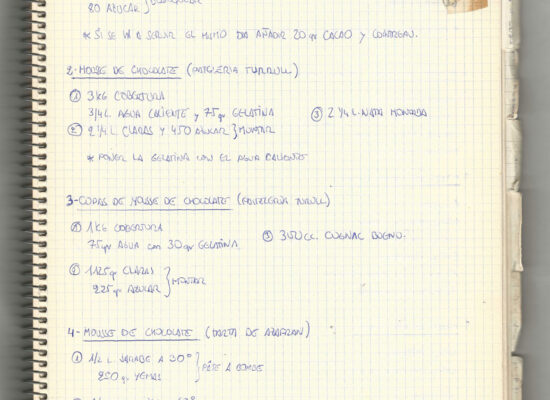 80 AZUCAR
* SI SE VA A SERVIR EL MISMO DIA AÑADIR 20 gr CACAO Y
2-MOUSSE DE CHOCOLATE (PASTELERIA TURRULL)
① 3 KG COBERTURA
3/4 L. AGUA CALIENTE y 75 gr GELATINA ③ 2 1/4 L. NATA MONTADA
② 2 1/4 L. CLARAS Y 450 AZUCAR } MONTAR
* PONER LA GELATINA CON EL AGUA CALIENTE
3-COPAS DE MOUSSE DE CHOCOLATE (PASTELERIA TURULL)
① 1 KG COBERTURA
75 gr AGUA con 30 gr GELATINA ③ 350 cc. COGNAC BUENO.
② 1125 gr CLARAS
225 gr AZUCAR } MONTAR
4- MOUSSE DE CHOCOLATE (TARTA DE AZAFRAN)
① 1/2 L. JARABE A 30°
250 gr YEMAS } PÂTE A BOMBE